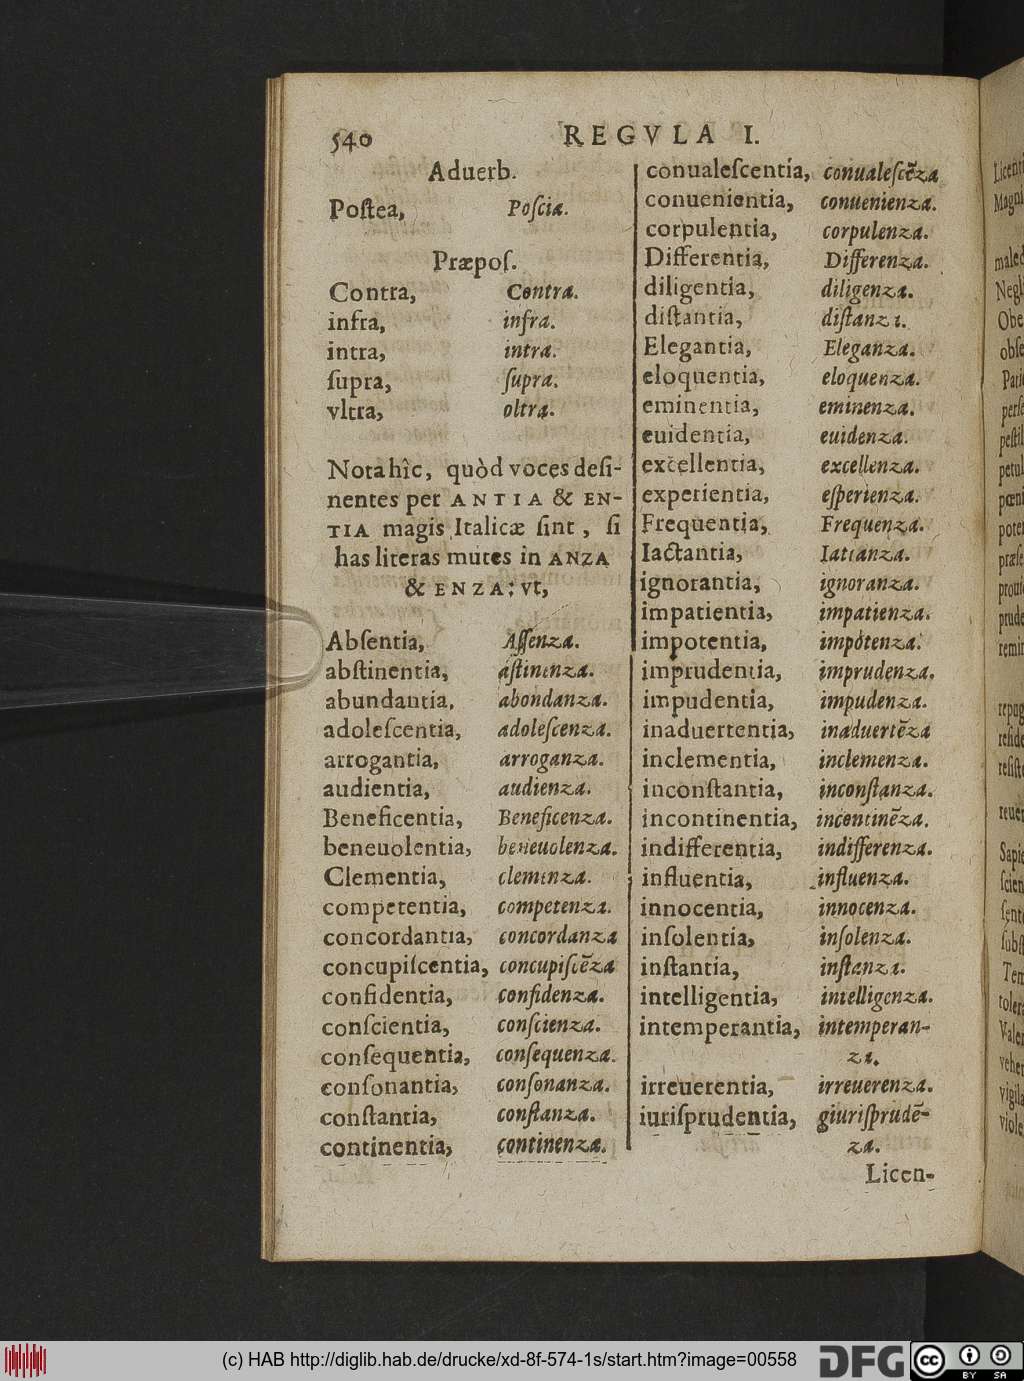 540 REGVLA I.
Aduerb.
Poſtea, Poſcia.
Præpoſ.
Contra, Contra.
infra, infra.
intra, intra.
ſupra, ſupra.
vltra, oltra.
Nota hîc, quòd voces deſi-
nentes per ANTIA & EN-
TIA magis Italicæ ſint, ſi
has literas mutes in ANZA
& ENZA: vt,
Abſentia, Aſſenza.
abſtinentia, aſtinenza.
abundantia, abondanza.
adoleſcentia, adoleſcenza.
arrogantia, arroganza.
audientia, audienza.
Beneficentia, Beneficenza.
beneuolentia, beneuolenza.
Clementia, clemenza.
competentia, competenza.
concordantia, concordanza
concupiſcentia, concupiſcẽza
confidentia, confidenza.
conſcientia, conſcienza.
conſequentia, conſequenza.
conſonantia, conſonanza.
conſtantia, conſtanza.
continentia, continenza.
conualeſcentia, conualeſcẽza
conuenientia, conuenienza.
corpulentia, corpulenza.
Differentia, Differenza.
diligentia, diligenza.
diſtantia, diſtanza.
Elegantia, Eleganza.
eloquentia, eloquenza.
eminentia, eminenza.
euidentia, euidenza.
excellentia, excellenza.
experientia, eſperienza.
Frequentia, Frequenza.
Iactantia, Iattanza.
ignorantia, ignoranza.
impatientia, impatienza.
impotentia, impotenza.
imprudentia, imprudenza.
impudentia, impudenza.
inaduertentia, inaduertẽza
inclementia, inclemenza.
inconſtantia, inconſtanza.
incontinentia, incontinẽza.
indifferentia, indifferenza.
influentia, influenza.
innocentia, innocenza.
inſolentia, inſolenza.
inſtantia, inſtanza.
intelligentia, intelligenza.
intemperantia, intemperan-
za.
irreuerentia, irreuerenza.
iuriſprudentia, giuriſprudẽ-
za.
Licen-
(c) HAB http://diglib.hab.de/drucke/xd-8f-574-1s/start.htm?image=00558
DFG
cc BY SA